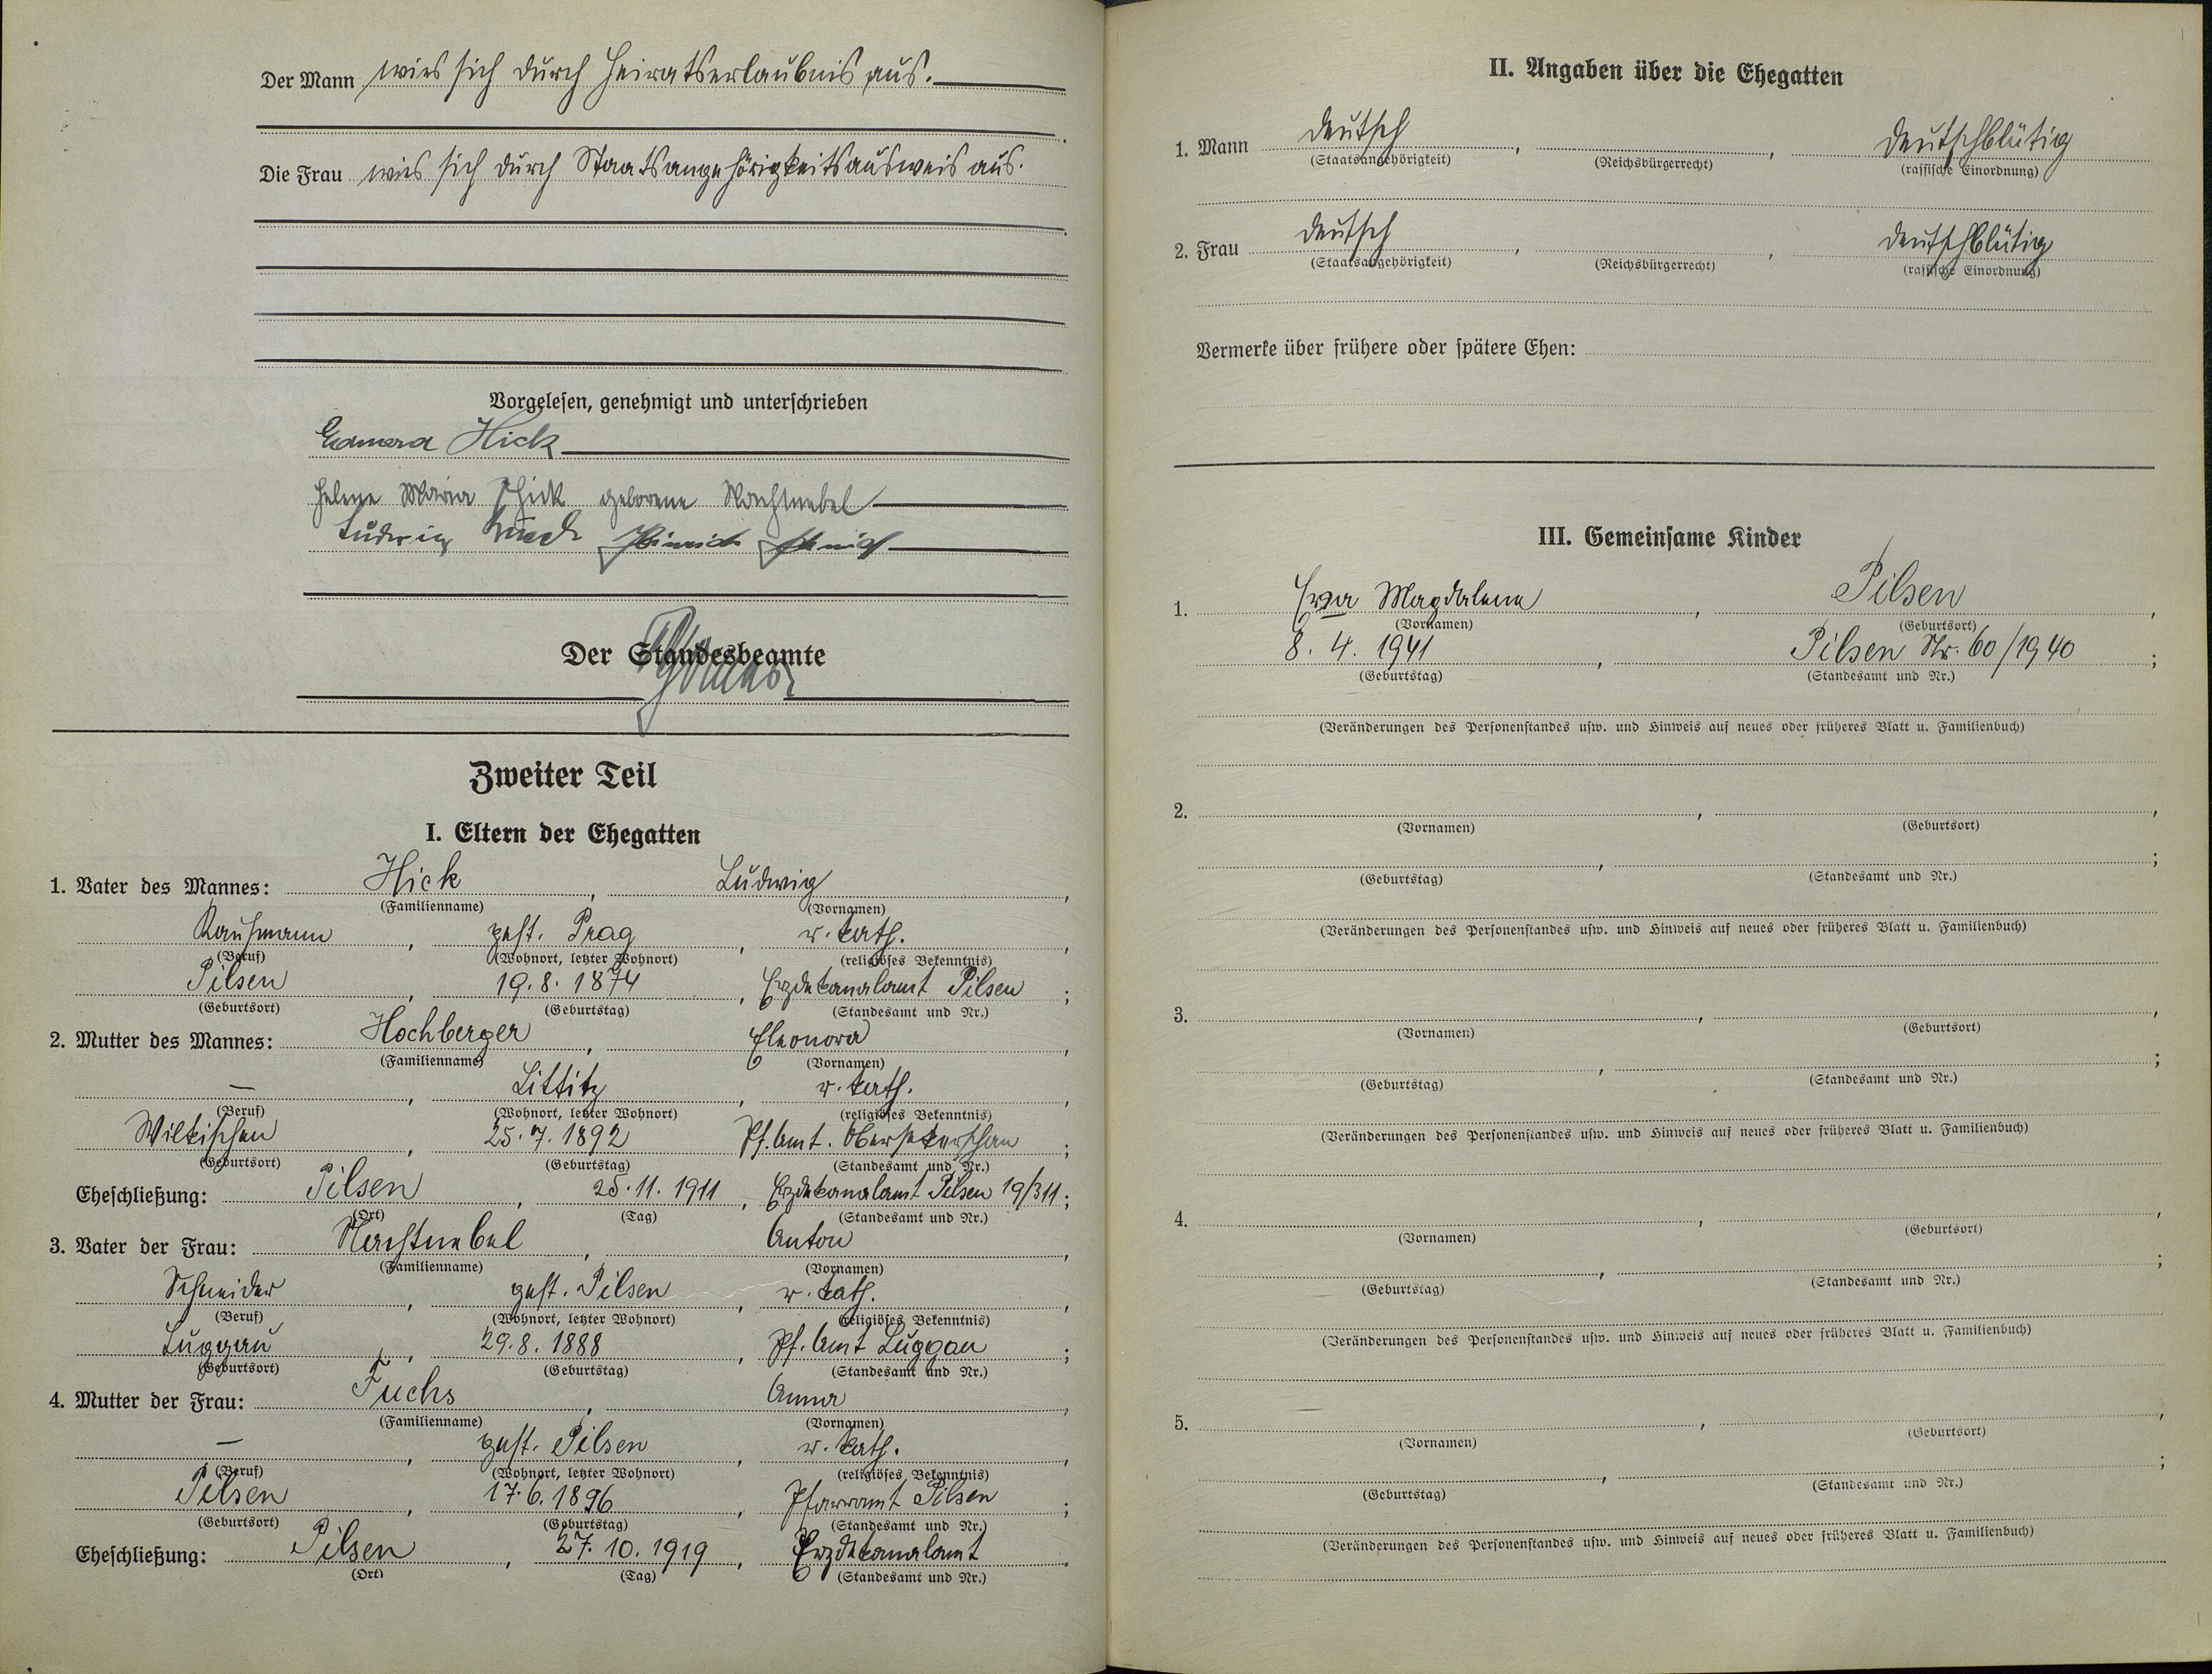 Der Mann wies sich durch Heiratserlaubnis aus.
Die Frau wies sich durch Staatsangehörigkeitsausweis aus.
Vorgelesen, genehmigt und unterschrieben
Hick
Helene Maria Hick geborene Nachtnebel
Ludwig
Der Standesbeamte
Zweiter Teil
I. Eltern der Ehegatten
1. Vater des Mannes: Hick, Ludwig,
(Familienname) (Vornamen)
Kaufmann, gest. Prag, r. kath.,
(Beruf) (Wohnort, letzter Wohnort) (religiöses Bekenntnis)
Pilsen, 19.8.1874, Erzdekanalamt Pilsen;
(Geburtsort) (Geburtstag) (Standesamt und Nr.)
2. Mutter des Mannes: Hochberger, Eleonora,
(Familienname) (Vornamen)
—, Littitz, r. kath.,
(Beruf) (Wohnort, letzter Wohnort) (religiöses Bekenntnis)
Wilkischen, 25.7.1892, Pf. Amt.;
(Geburtsort) (Geburtstag) (Standesamt und Nr.)
Eheschließung: Pilsen, 25.11.1911, Erzdekanalamt Pilsen 19/311;
(Ort) (Tag) (Standesamt und Nr.)
3. Vater der Frau: Nachtnebel, Anton,
(Familienname) (Vornamen)
Schneider, gest. Pilsen, r. kath.,
(Beruf) (Wohnort, letzter Wohnort) (religiöses Bekenntnis)
Luggau, 29.8.1888, Pf. Amt Luggau;
(Geburtsort) (Geburtstag) (Standesamt und Nr.)
4. Mutter der Frau: Fuchs, Anna,
(Familienname) (Vornamen)
—, gest. Pilsen, r. kath.,
(Beruf) (Wohnort, letzter Wohnort) (religiöses Bekenntnis)
Pilsen, 17.6.1896, Pfarramt Pilsen;
(Geburtsort) (Geburtstag) (Standesamt und Nr.)
Eheschließung: Pilsen, 27.10.1919, Erzdekanalamt.
(Ort) (Tag) (Standesamt und Nr.)
II. Angaben über die Ehegatten
1. Mann deutsch, , deutschblütig
(Staatsangehörigkeit) (Reichsbürgerrecht) (rassische Einordnung)
2. Frau deutsch, , deutschblütig
(Staatsangehörigkeit) (Reichsbürgerrecht) (rassische Einordnung)
Vermerke über frühere oder spätere Ehen:
III. Gemeinsame Kinder
1. Magdalena, Pilsen,
(Vornamen) (Geburtsort)
8.4.1941, Pilsen Nr. 60/1940;
(Geburtstag) (Standesamt und Nr.)
(Veränderungen des Personenstandes usw. und Hinweis auf neues oder früheres Blatt u. Familienbuch)
2. , ,
(Vornamen) (Geburtsort)
, ;
(Geburtstag) (Standesamt und Nr.)
(Veränderungen des Personenstandes usw. und Hinweis auf neues oder früheres Blatt u. Familienbuch)
3. , ,
(Vornamen) (Geburtsort)
, ;
(Geburtstag) (Standesamt und Nr.)
(Veränderungen des Personenstandes usw. und Hinweis auf neues oder früheres Blatt u. Familienbuch)
4. , ,
(Vornamen) (Geburtsort)
, ;
(Geburtstag) (Standesamt und Nr.)
(Veränderungen des Personenstandes usw. und Hinweis auf neues oder früheres Blatt u. Familienbuch)
5. , ,
(Vornamen) (Geburtsort)
, ;
(Geburtstag) (Standesamt und Nr.)
(Veränderungen des Personenstandes usw. und Hinweis auf neues oder früheres Blatt u. Familienbuch)